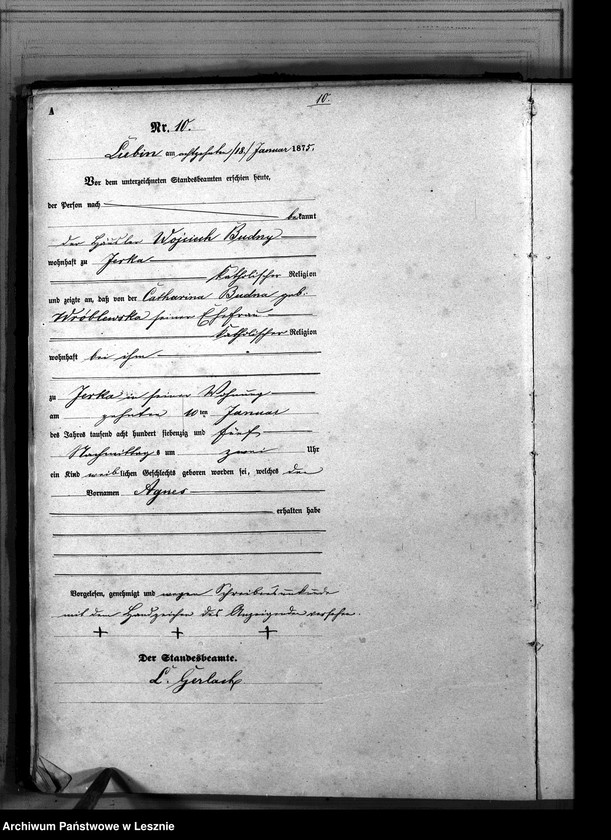 10.
A
Nr. 10.
Lubin am achtzehnten /18./ Januar 1875.
Vor dem unterzeichneten Standesbeamten erschien heute,
der Person nach
bekannt
der Häusler Wojciech Budny
wohnhaft zu Jerka
katholischer Religion
und zeigte an, daß von der Catharina Budna geb:
Wróblewska seiner Ehefrau
katholischer Religion
wohnhaft bei ihm
zu Jerka in seiner Wohnung
am zehnten 10 ten Januar
des Jahres tausend acht hundert siebenzig und fünf
Nachmittags um zwei Uhr
ein Kind weiblichen Geschlechts geboren worden sei, welches den
Vornamen Agnes
erhalten habe
Vorgelesen, genehmigt und wegen Schreibensunkunde
mit dem Handzeichen des Anzeigenden versehen.
+ + +
Der Standesbeamte.
L. Gerlach.
Archiwum Państwowe w Lesznie